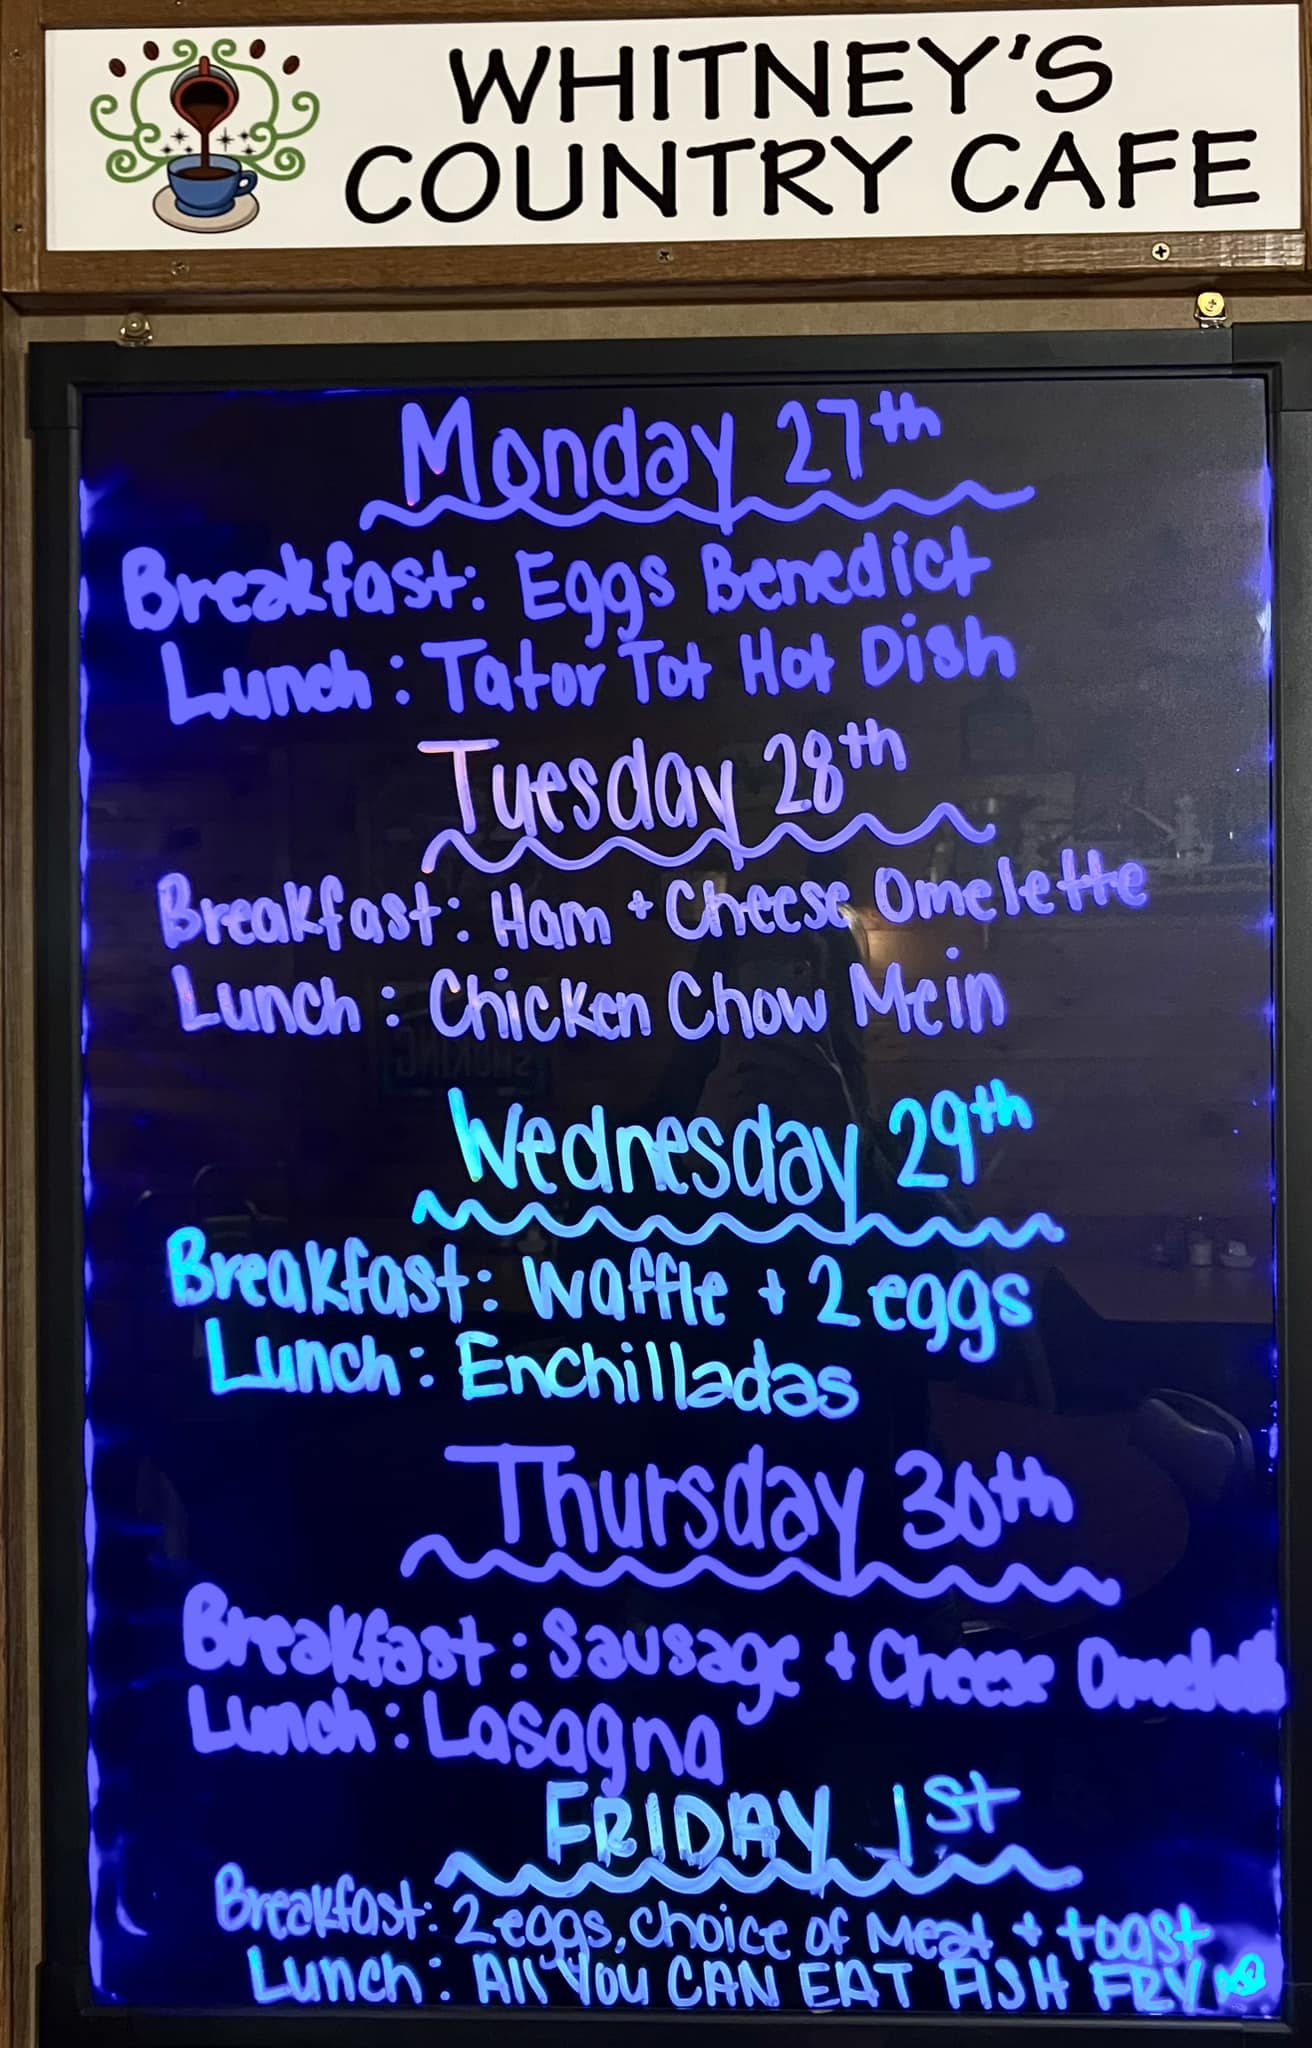 WHITNEY'S
COUNTRY CAFE
Monday 27th
Breakfast: Eggs Benedict
Lunch: Tator Tot Hot Dish
Tuesday 28th
Breakfast: Ham + Cheese Omelette
Lunch: Chicken Chow Mein
Wednesday 29th
Breakfast: Waffle + 2 eggs
Lunch: Enchilladas
Thursday 30th
Breakfast: Sausage + Cheese
Lunch: Lasagna
FRIDAY 1st
Breakfast: 2 eggs, choice of Meat + toast
Lunch: All You CAN EAT FISH FRY